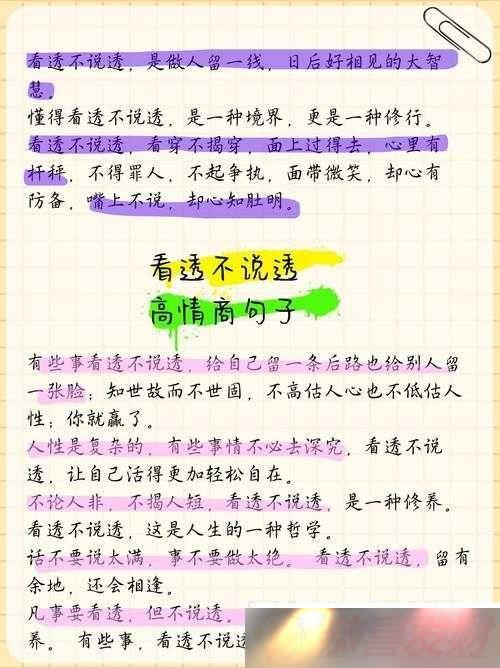 看透不说透，是做人留一线，日后好相见的大智
慧。
懂得看透不说透，是一种境界，更是一种修行。
看透不说透，看穿不揭穿，面上过得去，心里有
杆秤，不得罪人，不起争执，面带微笑，却心有
防备，嘴上不说，却心知肚明。
看透不说透
高情商句子
有些事看透不说透，给自己留一条后路也给别人留
一张脸；知世故而不世固，不高估人心也不低估人
性；你就赢了。
人性是复杂的，有些事情不必去深究，看透不说
透，让自己活得更加轻松自在。
不论人非，不揭人短，看透不说透，是一种修养。
看透不说透，这是人生的一种哲学。
话不要说太满，事不要做太绝。 看透不说透，留有
余地，还会相逢。
凡事要看透，但不说透。
养。 有些事，看透不说透